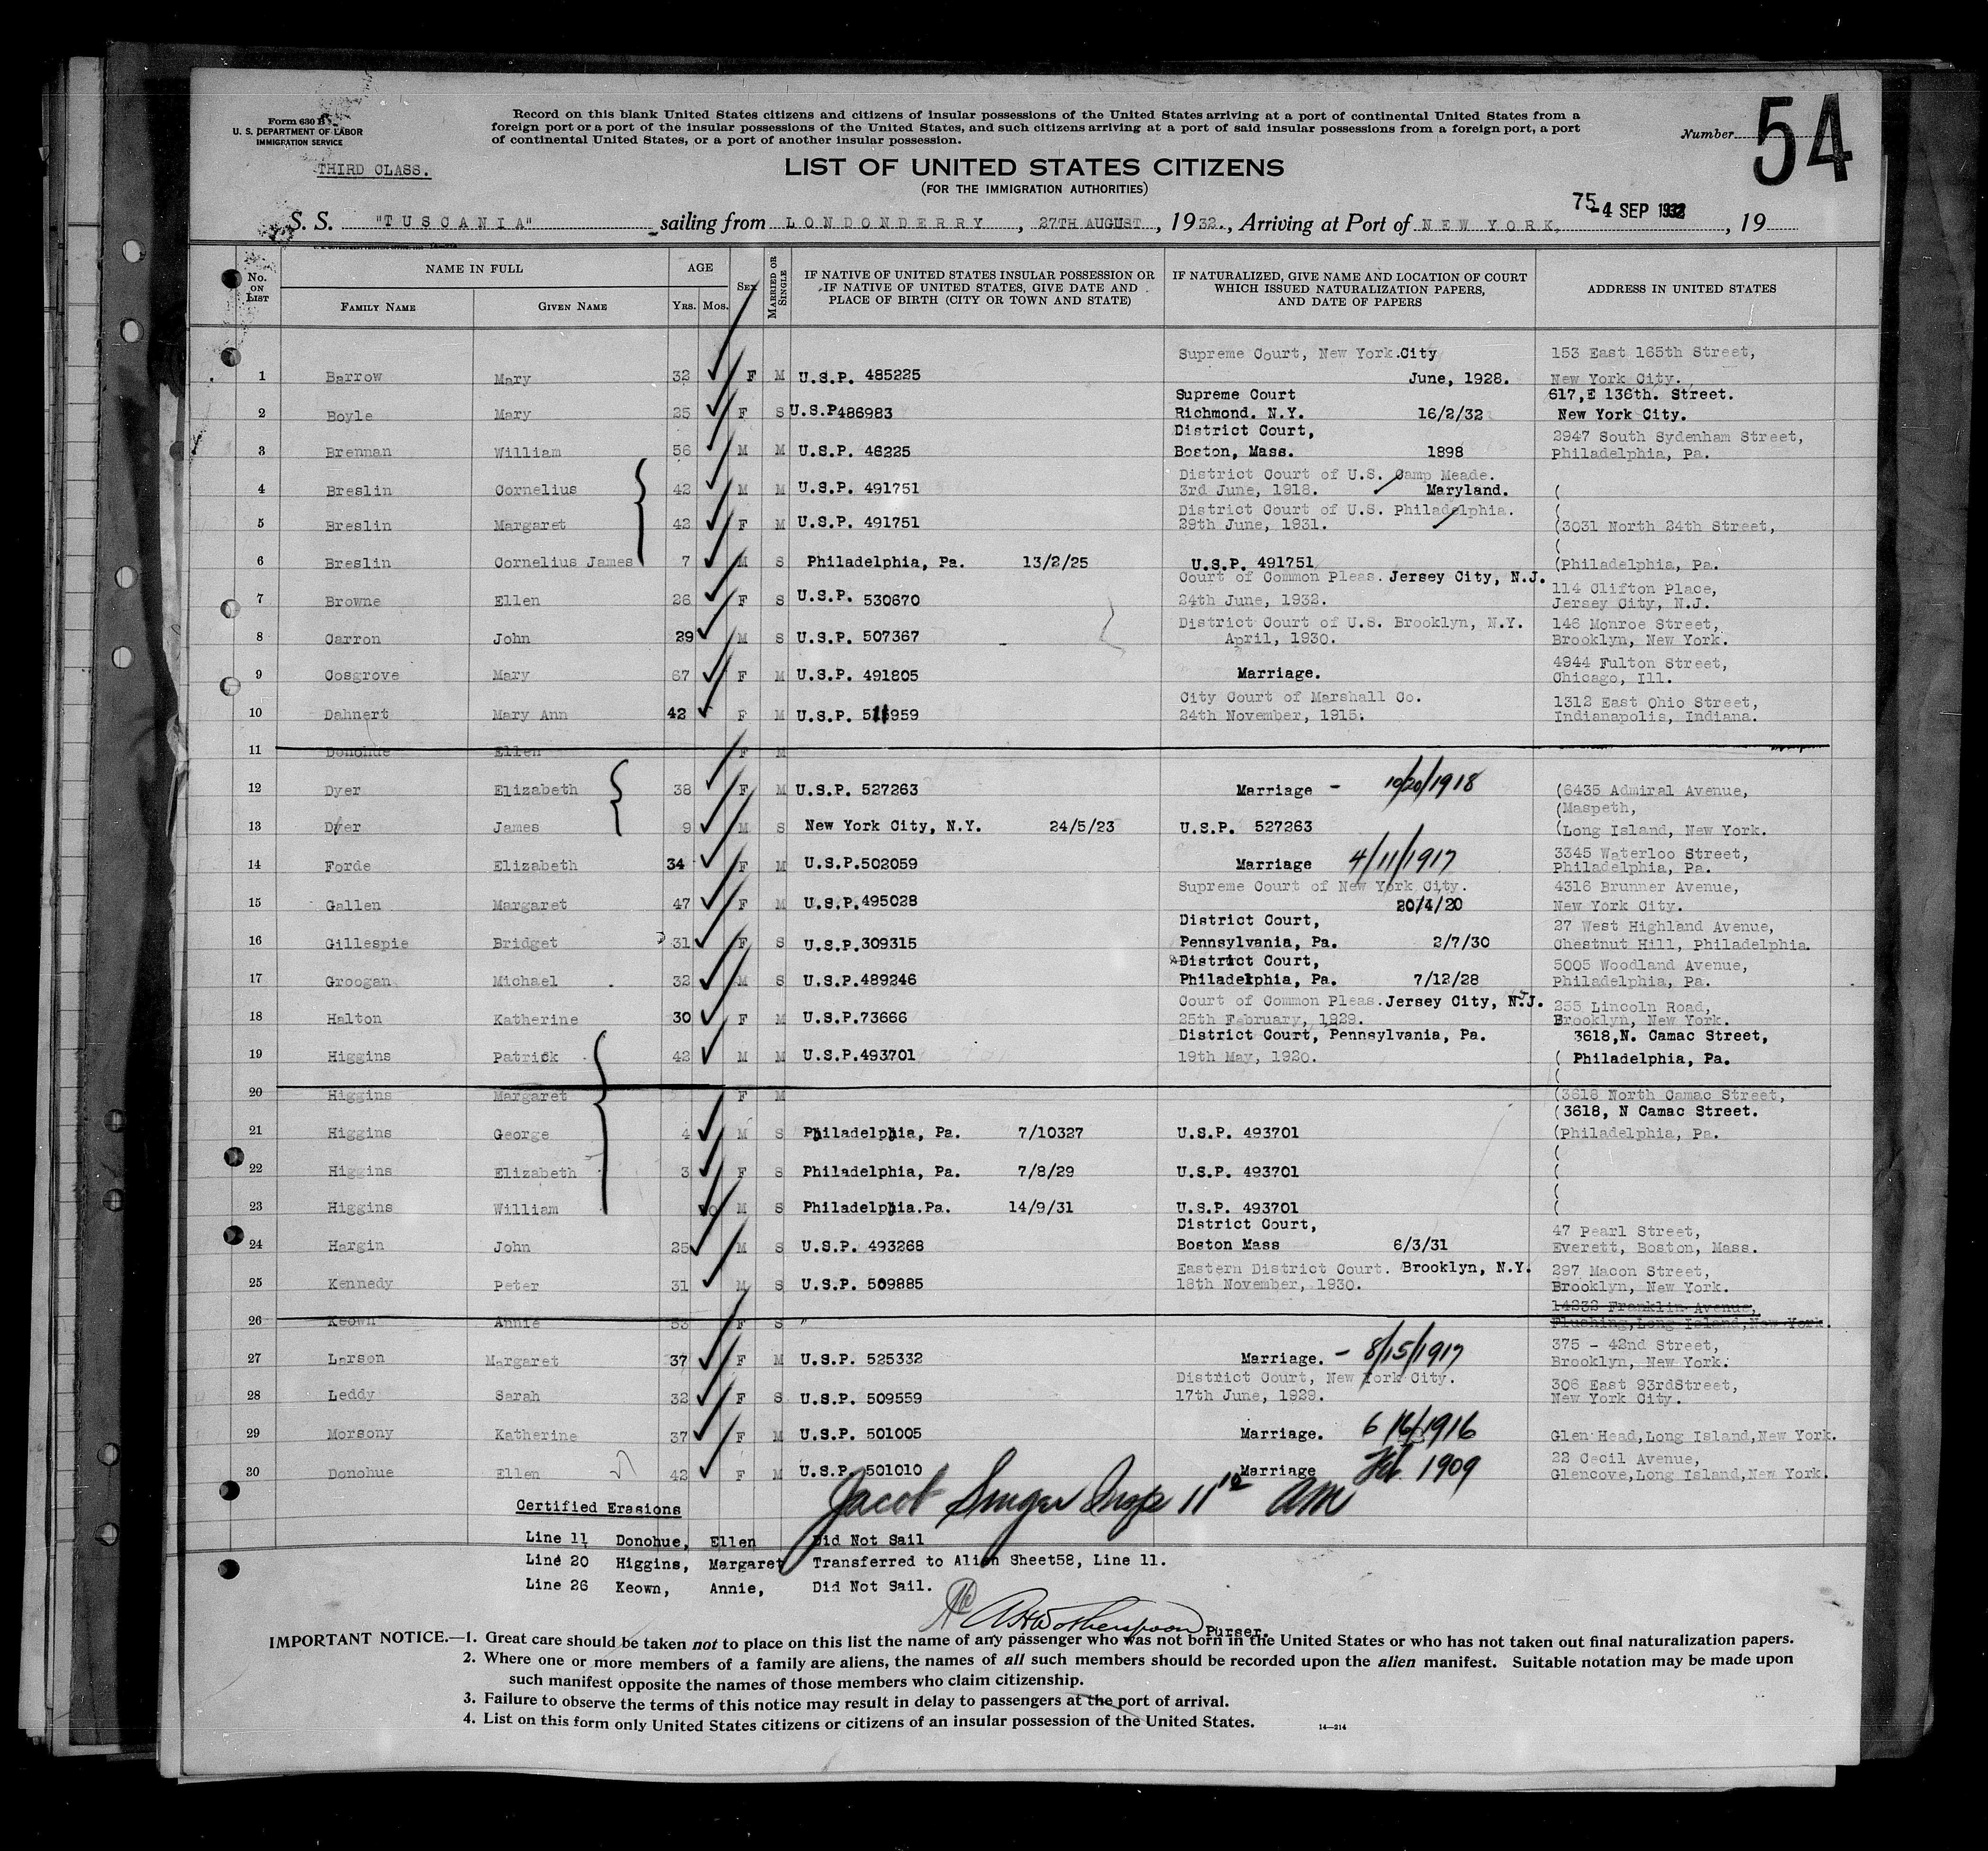 Form 630 B
U. S. DEPARTMENT OF LABOR
IMMIGRATION SERVICE
THIRD CLASS.
Record on this blank United States citizens and citizens of insular possessions of the United States arriving at a port of continental United States from a
foreign port or a port of the insular possessions of the United States, and such citizens arriving at a port of said insular possessions from a foreign port, a port
of continental United States, or a port of another insular possession.
Number 54
LIST OF UNITED STATES CITIZENS
(FOR THE IMMIGRATION AUTHORITIES)
75 -4 SEP 1932
S. S. "TUSCANIA" sailing from LONDONDERRY, 27TH AUGUST, 1932., Arriving at Port of NEW YORK, , 19
No. ON LIST
NAME IN FULL
FAMILY NAME GIVEN NAME
AGE
Yrs. Mos.
SEX
MARRIED OR SINGLE
IF NATIVE OF UNITED STATES INSULAR POSSESSION OR
IF NATIVE OF UNITED STATES, GIVE DATE AND
PLACE OF BIRTH (CITY OR TOWN AND STATE)
IF NATURALIZED, GIVE NAME AND LOCATION OF COURT
WHICH ISSUED NATURALIZATION PAPERS,
AND DATE OF PAPERS
ADDRESS IN UNITED STATES
Supreme Court, New York.City 153 East 165th Street,
1 Barrow Mary 32 F M U.S.P. 485225 June, 1928. New York City.
Supreme Court 617,E 136th. Street.
2 Boyle Mary 25 F S U.S.P486983 Richmond. N.Y. 16/2/32 New York City.
District Court, 2947 South Sydenham Street,
3 Brennan William 56 M M U.S.P. 46225 Boston, Mass. 1898 Philadelphia, Pa.
District Court of U.S. Camp Meade.
4 Breslin Cornelius 42 M M U.S.P. 491751 3rd June, 1918. Maryland. (
District Court of U.S. Philadelphia. (
5 Breslin Margaret 42 F M U.S.P. 491751 29th June, 1931. (3031 North 24th Street,
(
6 Breslin Cornelius James 7 M S Philadelphia, Pa. 13/2/25 U.S.P. 491751 (Philadelphia, Pa.
Court of Common Pleas. Jersey City, N.J. 114 Clifton Place,
7 Browne Ellen 26 F S U.S.P. 530670 24th June, 1932. Jersey City, N.J.
District Court of U.S. Brooklyn, N.Y. 146 Monroe Street,
8 Carron John 29 M S U.S.P. 507367 April, 1930. Brooklyn, New York.
4944 Fulton Street,
9 Cosgrove Mary 67 F M U.S.P. 491805 Marriage. Chicago, Ill.
City Court of Marshall Co. 1312 East Ohio Street,
10 Dahnert Mary Ann 42 F M U.S.P. 24th November, 1915. Indianapolis, Indiana.
11 Donohue Ellen F M
12 Dyer Elizabeth 38 F M U.S.P. 527263 Marriage - 10/20/1918 (6435 Admiral Avenue,
(Maspeth,
13 Dyer James 9 M S New York City, N.Y. 24/5/23 U.S.P. 527263 (Long Island, New York.
3345 Waterloo Street,
14 Forde Elizabeth 34 F M U.S.P.502059 Marriage 4/11/1917 Philadelphia, Pa.
Supreme Court of New York City. 4316 Brunner Avenue,
15 Gallen Margaret 47 F M U.S.P.495028 20/4/20 New York City.
District Court, 27 West Highland Avenue,
16 Gillespie Bridget 31 F S U.S.P.309315 Pennsylvania, Pa. 2/7/30 Chestnut Hill, Philadelphia.
District Court, 5005 Woodland Avenue,
17 Groogan Michael 32 M S U.S.P.489246 Philadelphia, Pa. 7/12/28 Philadelphia, Pa.
Court of Common Pleas. Jersey City, N.J. 255 Lincoln Road,
18 Halton Katherine 30 F M U.S.P.73666 25th February, 1929. Brooklyn, New York.
District Court, Pennsylvania, Pa. 3618,N. Camac Street,
19 Higgins Patrick 42 M M U.S.P.493701 19th May, 1920. ( Philadelphia, Pa.
(
20 Higgins Margaret F M (3618 North Camac Street,
(3618, N Camac Street.
21 Higgins George 4 M S Philadelphia, Pa. 7/10327 U.S.P. 493701 (Philadelphia, Pa.
(
22 Higgins Elizabeth 3 F S Philadelphia, Pa. 7/8/29 U.S.P. 493701 (
(
23 Higgins William M S Philadelphia.Pa. 14/9/31 U.S.P. 493701 (
District Court, 47 Pearl Street,
24 Hargin John 25 M S U.S.P. 493268 Boston Mass 6/3/31 Everett, Boston, Mass.
Eastern District Court. Brooklyn, N.Y. 297 Macon Street,
25 Kennedy Peter 31 M S U.S.P. 509885 18th November, 1930. Brooklyn, New York.
14232 Franklin Avenue,
26 Keown Annie 53 F S " Flushing,Long Island,New York.
375 - 42nd Street,
27 Larson Margaret 37 F M U.S.P. 525332 Marriage. - 8/15/1917 Brooklyn, New York.
District Court, New York City. 306 East 93rdStreet,
28 Leddy Sarah 32 F S U.S.P. 509559 17th June, 1929. New York City.
29 Morsony Katherine 37 F M U.S.P. 501005 Marriage. 6/16/1916 Glen Head,Long Island,New York.
22 Cecil Avenue,
30 Donohue Ellen 42 F M U.S.P. 501010 Marriage Feb. 1909 Glencove,Long Island,New York.
Jacob Singer Insp 11 12 AM
Certified Erasions
Line 11 Donohue, Ellen Did Not Sail
Line 20 Higgins, Margaret Transferred to Alien Sheet58, Line 11.
Line 26 Keown, Annie, Did Not Sail.
Purser.
IMPORTANT NOTICE.—1. Great care should be taken not to place on this list the name of any passenger who was not born in the United States or who has not taken out final naturalization papers.
2. Where one or more members of a family are aliens, the names of all such members should be recorded upon the alien manifest. Suitable notation may be made upon
such manifest opposite the names of those members who claim citizenship.
3. Failure to observe the terms of this notice may result in delay to passengers at the port of arrival.
4. List on this form only United States citizens or citizens of an insular possession of the United States.
14—214